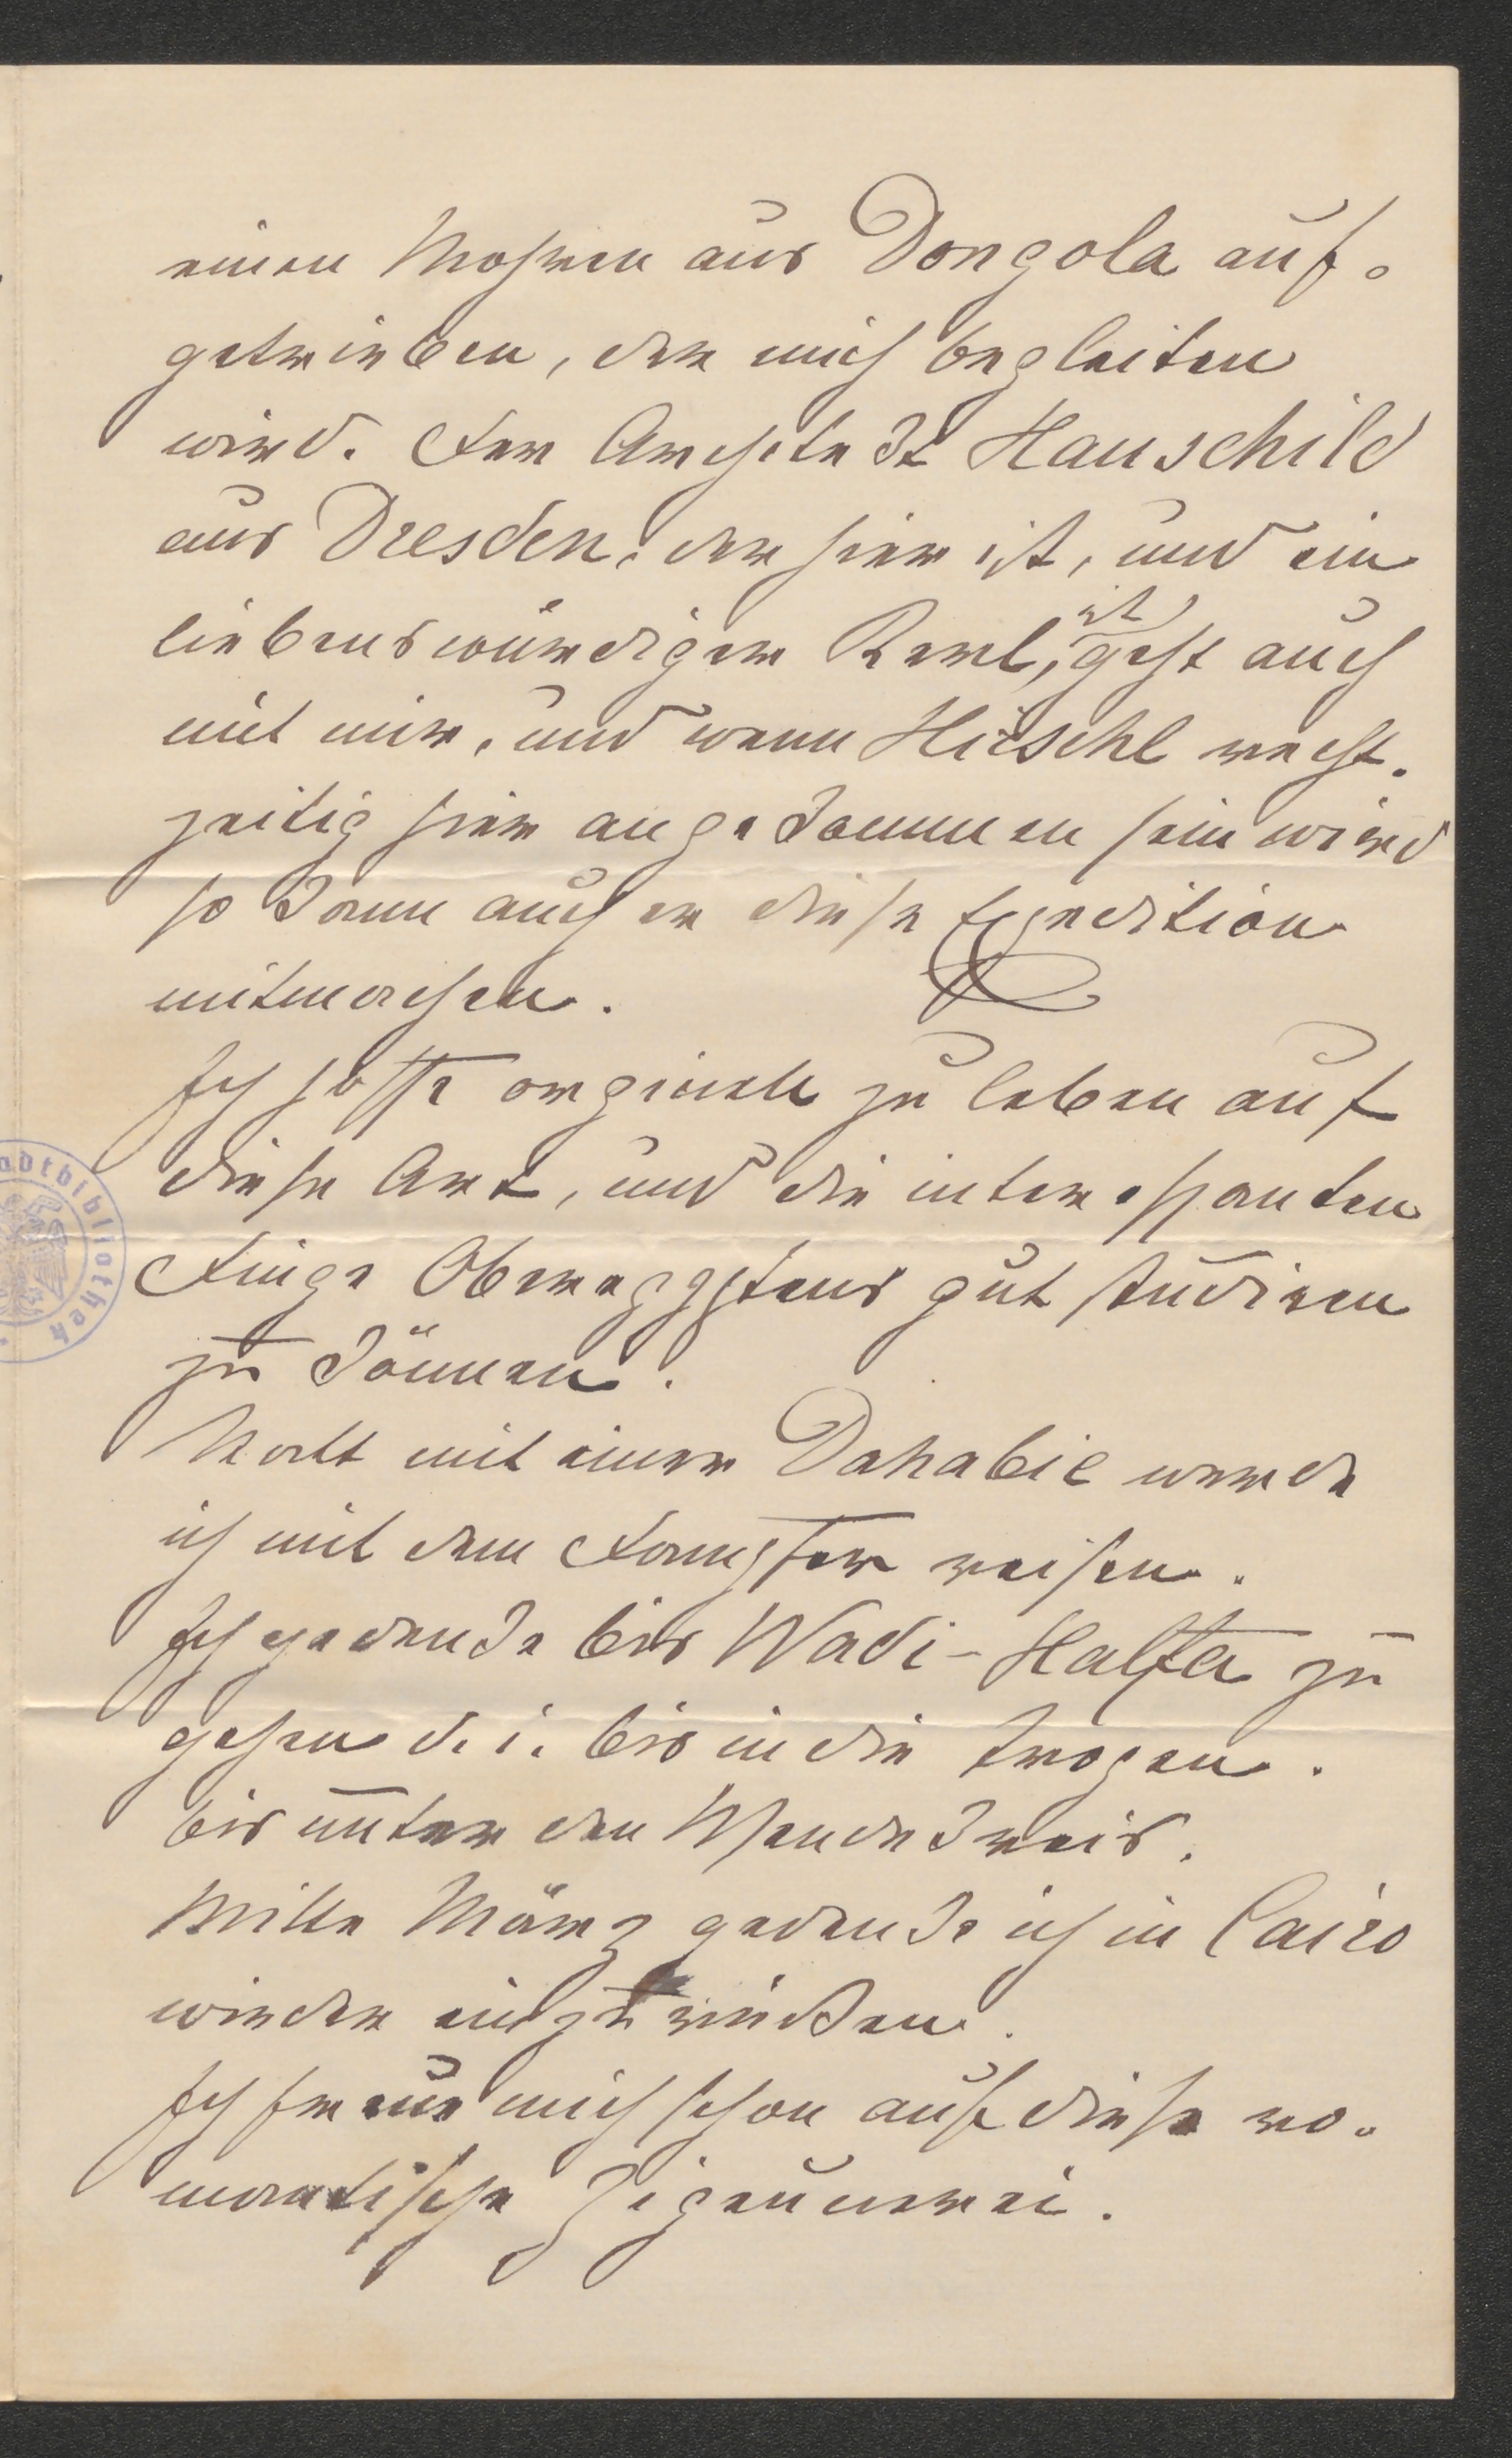 einen Mohren aus Dongola auf-
getrieben, der mich begleiten
wird. Der Archetekt Hauschild
aus Dresden, der hier ist, und ein
liebenswürdiger Kerl, ist geht auch
mit mir, und wenn Hirschl recht-
zeitig hier angekommen sein wird
so kann auch er diese Expedition
mitmachen.
Ich hoffe originell zu leben auf
diese Art, und die interessanten
Dinge Oberegyptens gut studiren
zu können.
statt mit einer Dahabie werde
ich mit dem Dampfer reisen.
Ich gedenke bis Wadi-Halfa zu
gehen d. i. bis in die Tropen.
bis unter den Wendekreis.
Mitte März gedenke ich in Cairo
wieder einzurücken.
Ich freue mich schon auf diese ro-
mantische Zigeunerei.
adtbibliothek